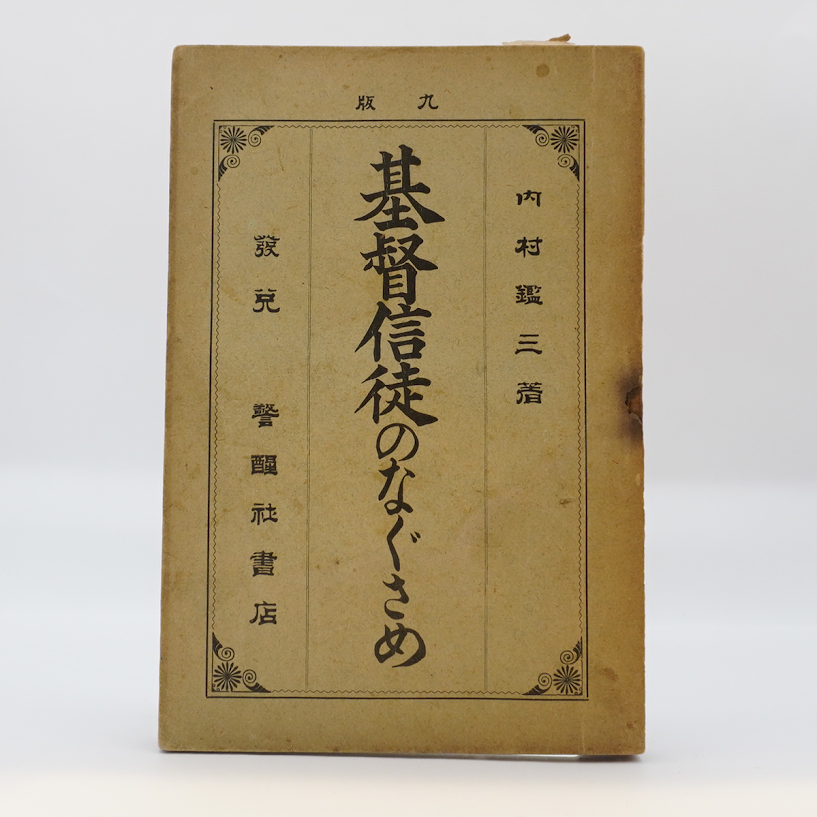 九版
内村鑑三著
基督信徒のなぐさめ
發兌 警醒社書店